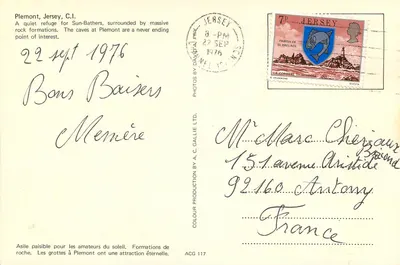 Plemont, Jersey, C.I.
A quiet refuge for Sun-Bathers, surrounded by massive
rock formations. The caves at Plemont are a never ending
point of interest.
22 sept 1976
Bons Baisers
JERSEY
8-PM
22 SEP
1976
7p JERSEY
Mr Marc
151 avenue Aristide
Briand
92160 Antony
France
PHOTOS BY
COLOUR PRODUCTION BY A. C. GALLIE LTD.
Asile paisible pour les amateurs du soleil. Formations de
roche. Les grottes à Plemont ont une attraction éternelle.
ACG 117